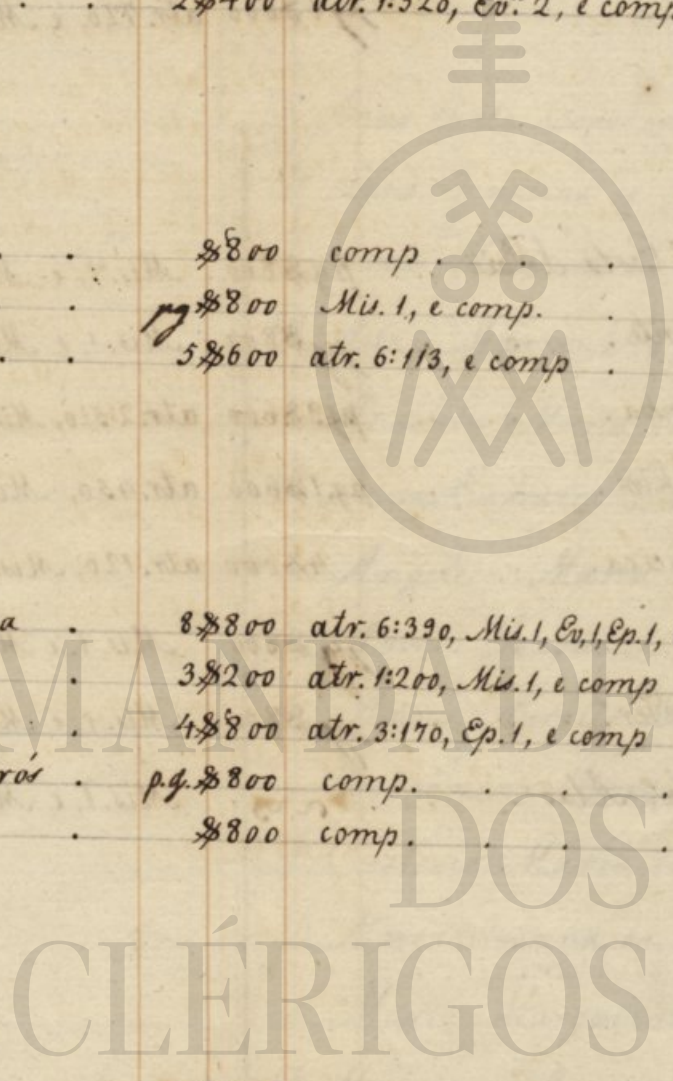 2$400 atr. 1:320, Ev. 2, e comp
$800 comp .
pg $800 Mis. 1, e comp.
5$600 atr. 6:113, e comp .
a . 8$800 atr. 6:390, Mis. 1, Ev, 1, Ep. 1,
3$200 atr. 1:200, Mis. 1, e comp
4$800 atr. 3:170, Ep. 1, e comp
rós . p.g. $800 comp. . . .
$800 comp. . . .
MANDADE
DOS
CLÉRIGOS